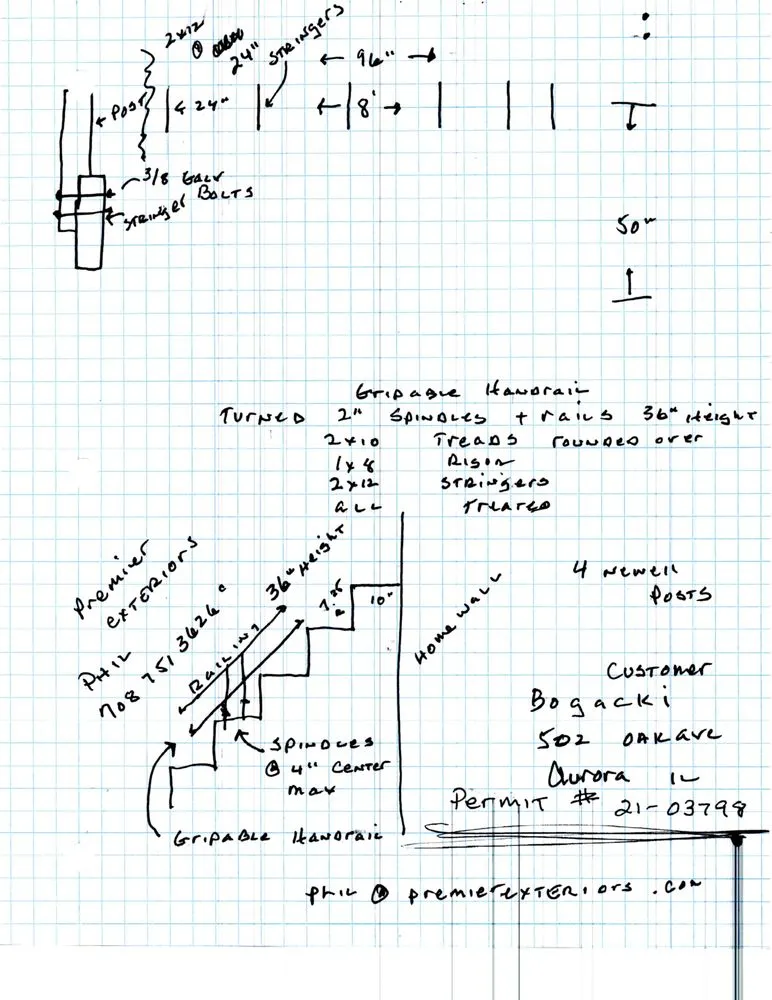 2x12
@ 24" STRINGERS
← 96" →
← POST
← 24"
← 8' →
3/8 GALV
STRINGER BOLTS
50"
GRIPABLE HANDRAIL
TURNED 2" SPINDLES + rails 36" Height
2x10 TREADS rounded over
1x8 RISOR
2x12 STRINGERS
ALL TREATED
Premier
EXTERIORS
PHIL
708 751 3626
36" Height
RAILING
10"
Home WALL
4 Newell
POSTS
SPINDLES
@ 4" CENTER
MAX
GRIPABLE HANDRAIL
CUSTOMER
Bogacki
502 OAK AVE
Aurora IL
PERMIT # 21-03798
PHIL @ PREMIEREXTERIORS.COM